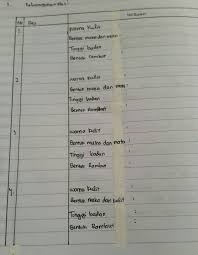 No
1
Warna kulit
Bentuk muka dan mata :
Tinggi badan :
Bentuk Rambut :
2
Warna kulit :
Bentuk muka dan mata :
Tinggi badan :
Bentuk Rambut :
3
Warna kulit :
Bentuk muka dan mata :
Tinggi badan :
Bentuk Rambut :
4
Warna kulit :
Bentuk muka dan :
Tinggi badan :
Bentuk Rambut :